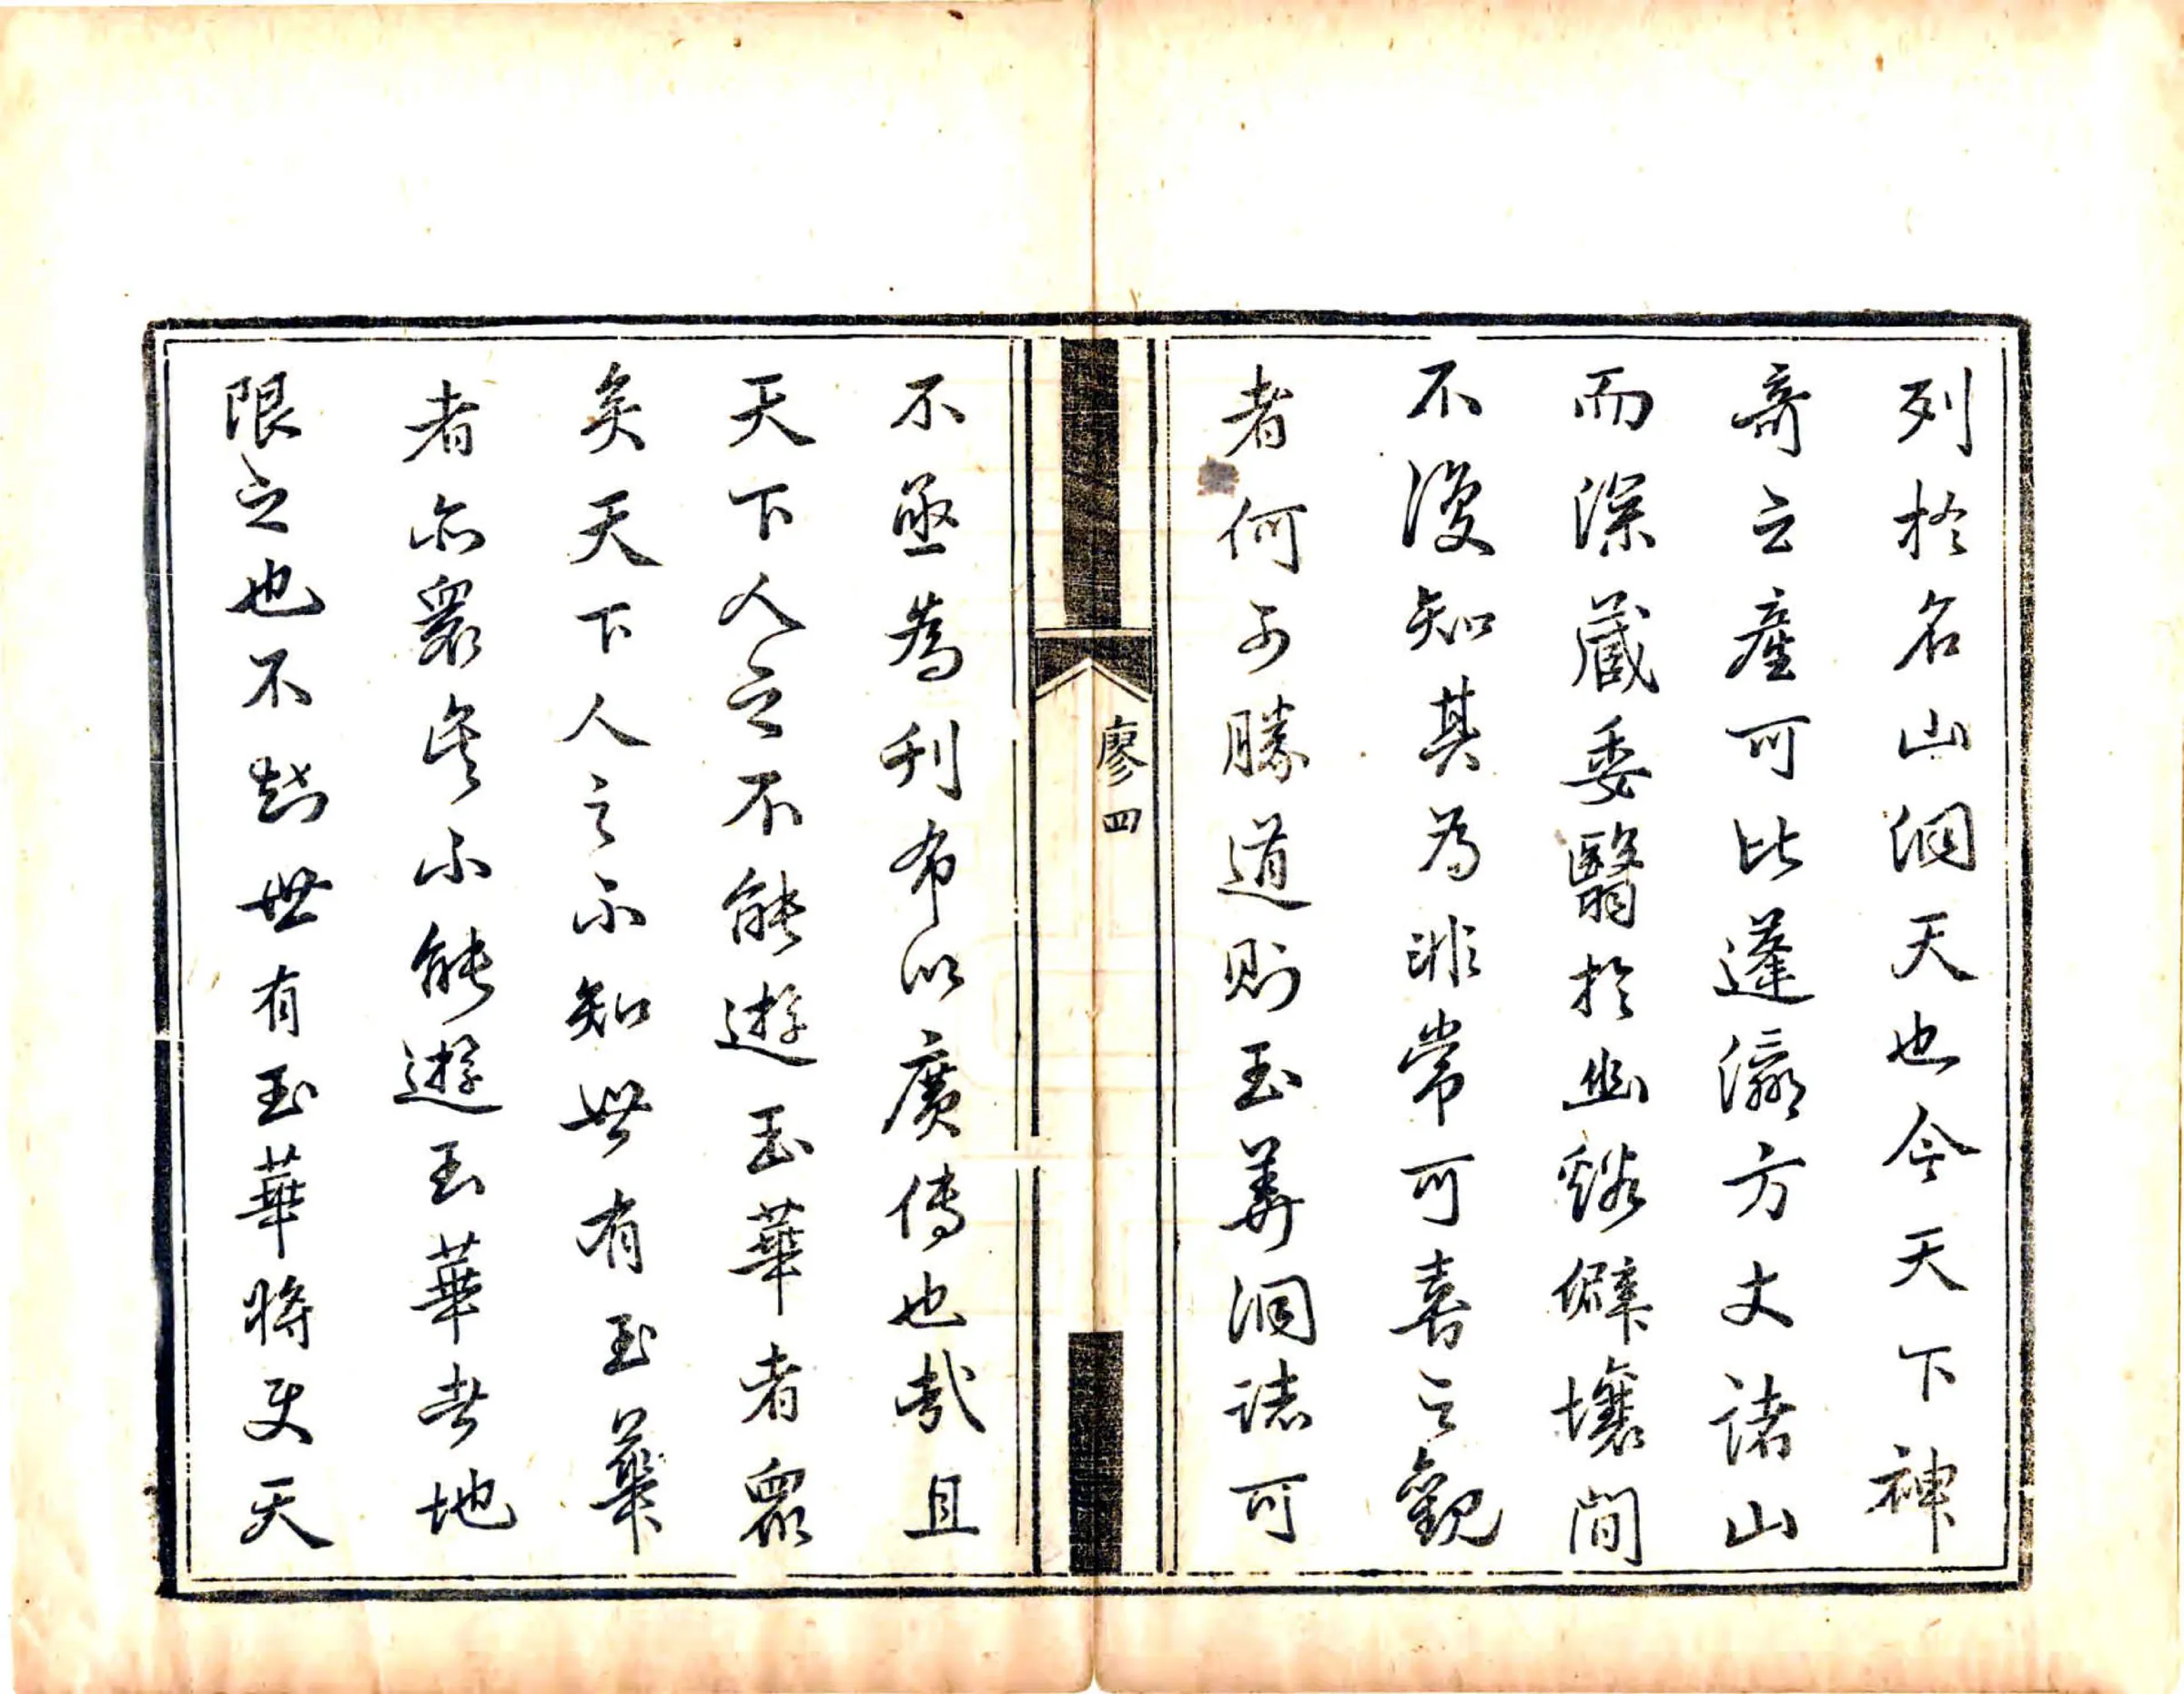 列於名山洞天也今天下神
奇之産可比蓬瀛方丈諸山
而深蔵委翳於幽谿僻壤間
不復知其為非常可喜之觀
者何可勝道則玉華洞誌可
廖四
不亟為刊布以廣傳也哉且
天下人之不能遊玉華者衆
矣天下人之不知世有玉華
者亦衆矣不能遊玉華者地
限之也不知世有玉華將更天